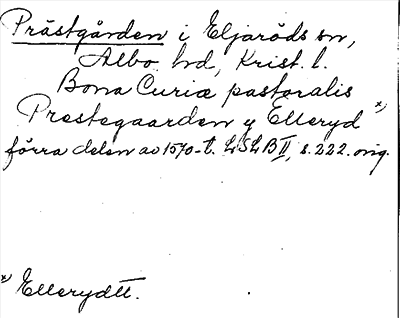 Prästgården i Eljaröds sn,
Albo hd, Krist. l.
Bona Curiæ pastoralis
Prestegaarden y Elleryd x)
förra delen av 1570-t. LSLB II, s. 222. orig.
x) Ellerydtt.